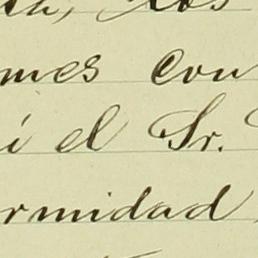 los
mes con
i el Sr.
rmidad